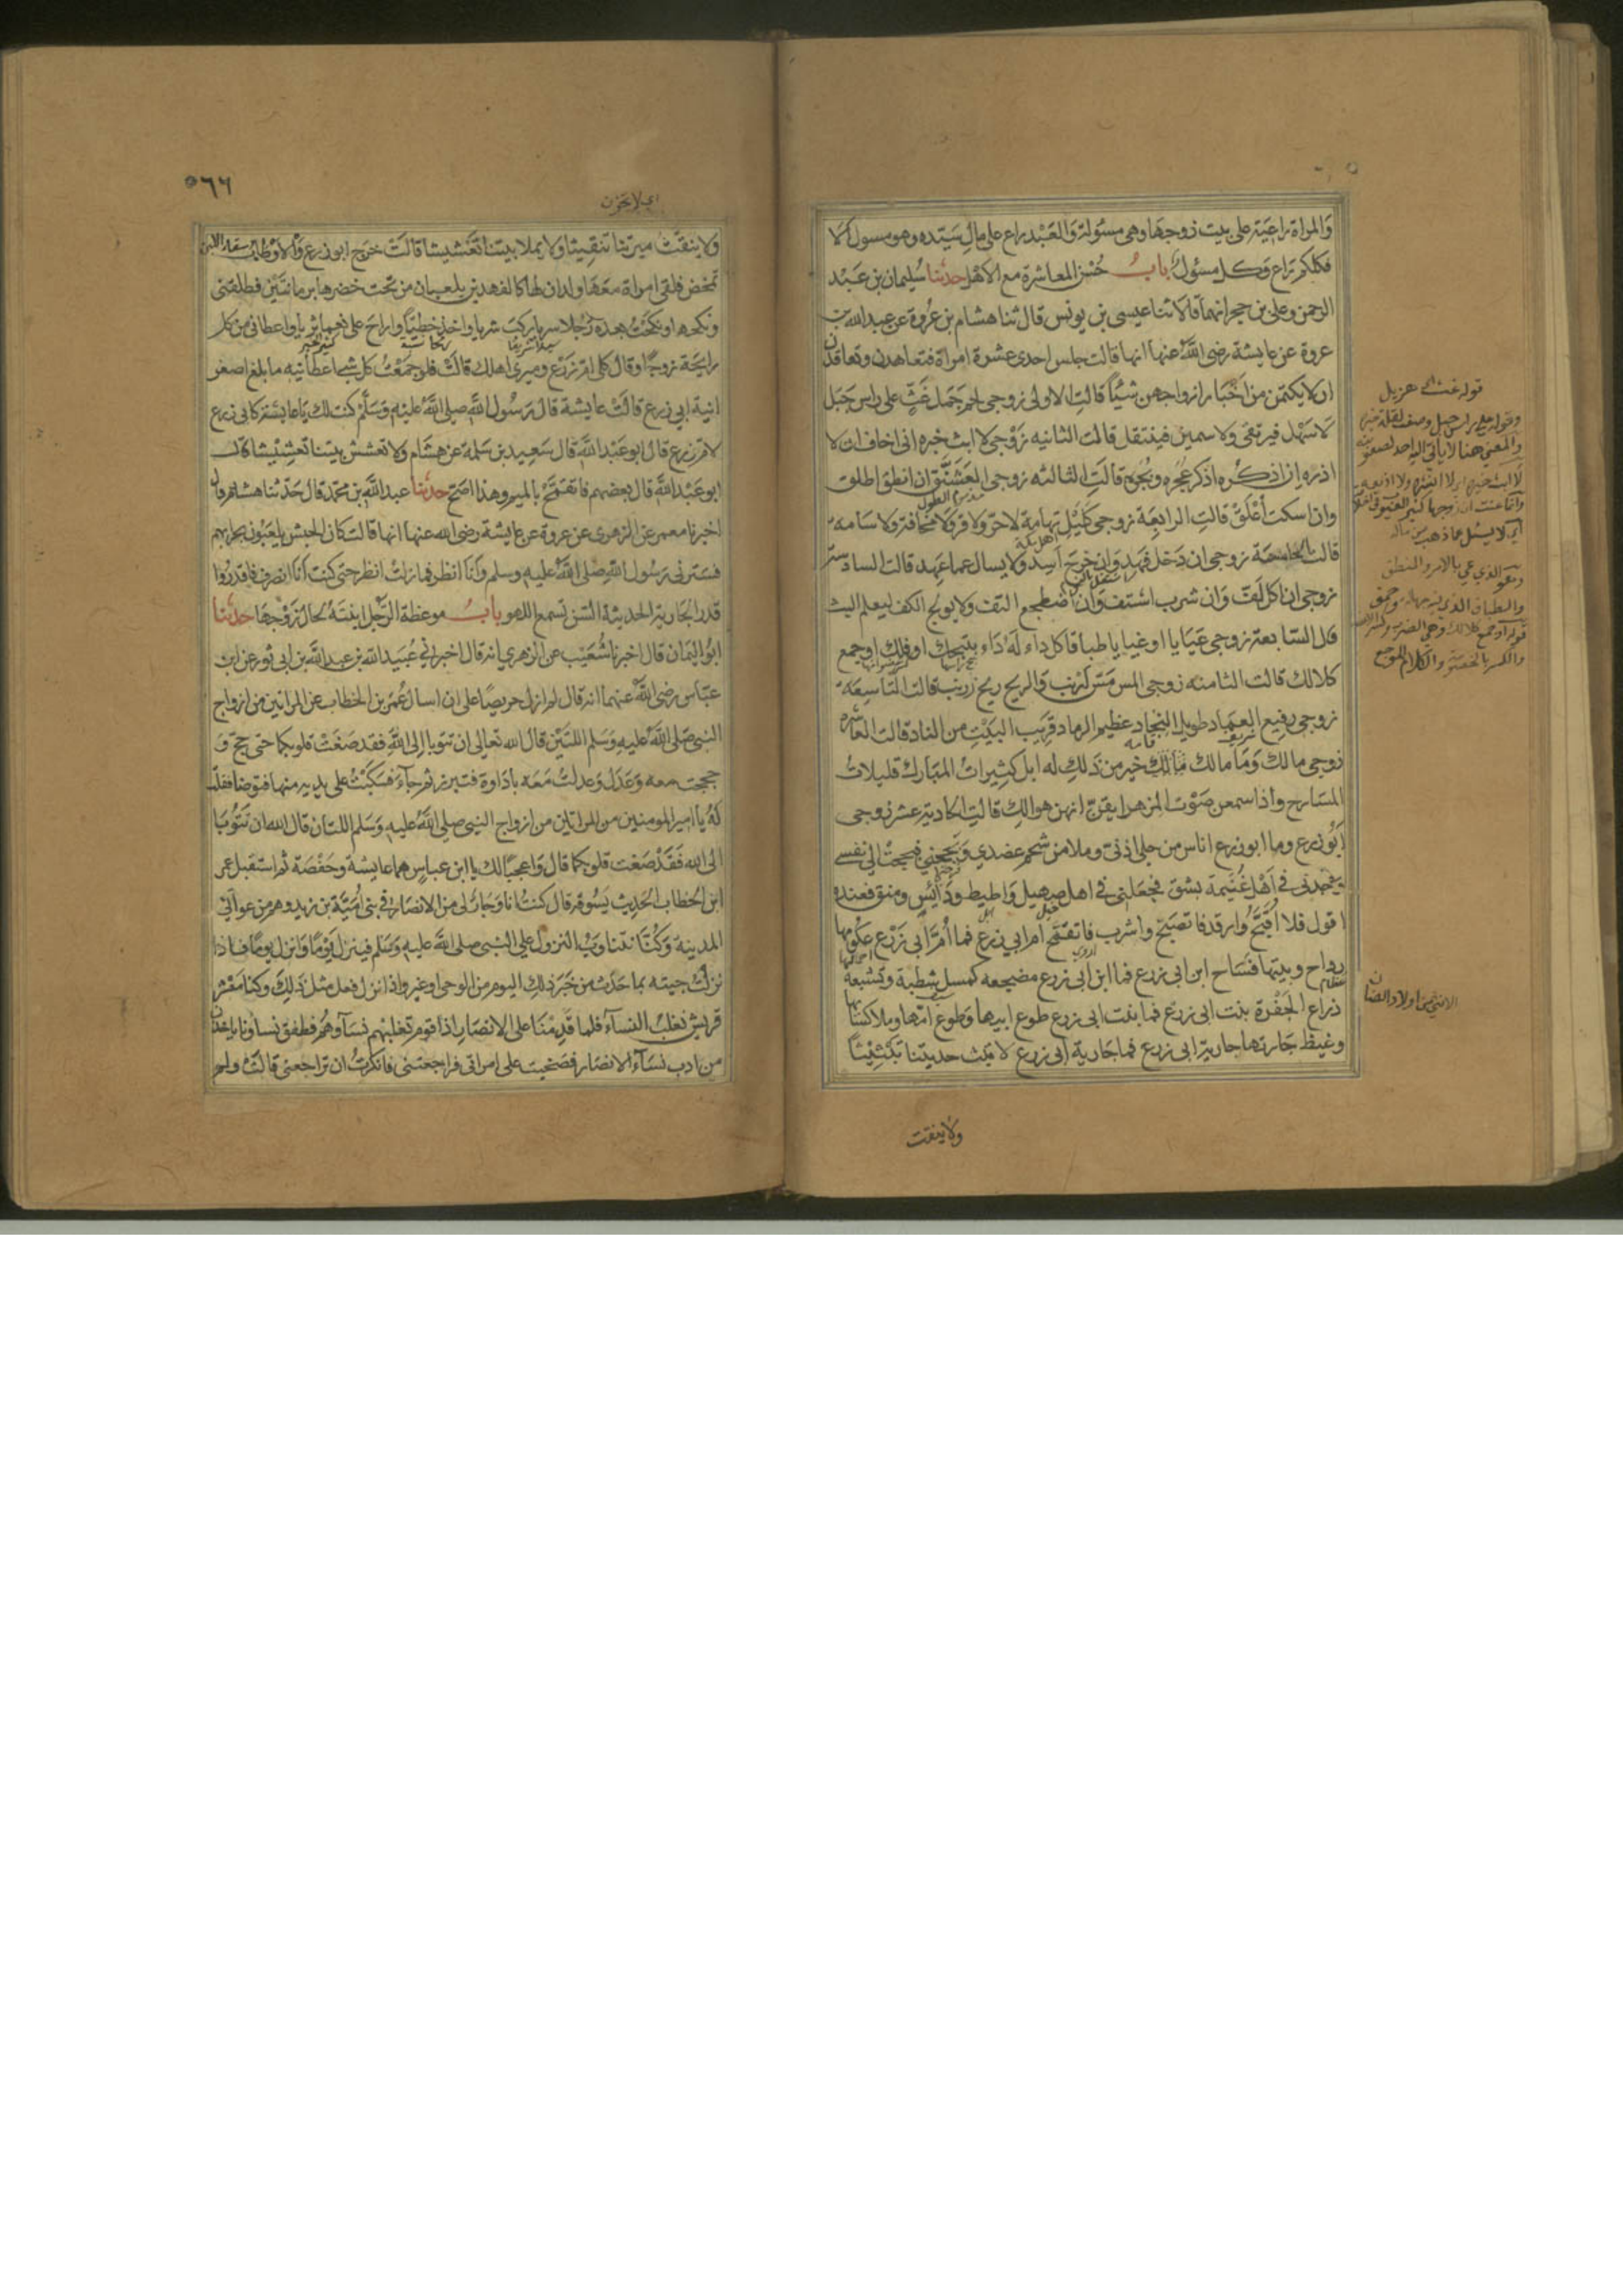 والمراة راعية على بيت زوجها وهي مسئولة والعبد راع على مال سيده وهو مسول الا
فكلكم راع وكل مسئول باب حسن المعاشرة مع الاهل حدثنا سليمان بن عبد
الرحمن وعلى بن حجر انهما قالا ثنا عيسى بن يونس قال ثنا هشام بن عروة عن عبد الله بن
عروة عن عايشة رضى الله عنها انها قالت جلس احدى عشرة امراة فتعاهدن وتعاقدن
ان لا يكتمن من اخبار ازواجهن شيئا قالت الاولى زوجى لحم جمل غث على راس جبل
لا سهل فيرتقى ولا سمين فينتقل قالت الثانيه زوجى لا ابث خبره انى اخاف ان لا
اذره ان اذكره اذكر عجره وبجره قالت الثالثه زوجى العشنق ان انطق اطلق
وان اسكت أعلق قالت الرابعة زوجى كليل تهامة لا حر ولا قر ولا مخافة ولا سامه
قالت الخامسة زوجى ان دخل فهد وان خرج اسد ولا يسال عما عهد قالت السادسة
زوجى ان اكل لف وان شرب اشتف وان اضطجع التف ولا يولج الكف ليعلم البث
قال السابعة زوجى غيايا او عيايا طباقا كل داء له داء شجك او فلك او جمع
كلالك قالت الثامنه زوجى المس مس ارنب والريح ريح زرنب قالت التاسعة
زوجى رفيع العماد طويل النجاد عظيم الرماد قريب البيت من الناد قالت العاشره
زوجى مالك وما مالك مالك خير من ذلك له ابل كثيرات المبارك قليلات
المسارح واذا سمعن صوت المزهر ايقن انهن هوالك قالت الحادية عشر زوجى
ابو زرع وما ابو زرع اناس من حلى اذنى وملا من شحم عضدي وبجحني فبجحت الى نفسى
وجدنى في اهل غنيمة بشق فجعلنى في اهل صهيل واطيط ودائس ومنق فعنده
اقول فلا اقبح وارقد فاتصبح واشرب فاتقنح ام ابي زرع فما ام ابى زرع عكومها
رداح وبيتها فساح ابن ابى زرع فما ابن ابى زرع مضجعه كمسل شطبة وتشبعه
ذراع الجفرة بنت ابى زرع فما بنت ابى زرع طوع ابيها وطوع امها وملا كسائها
وغيظ جارتها جارية ابى زرع فما جارية ابى زرع لا تبث حديثنا تبثيثا
ولا ينقث
قوله غث اى هزيل
اي لا يسئل عما ذهب من ماله
الانثى من اولاد الضان
٥٦٦
ولا ينقث ميرتنا تنقيثا ولا يملا بيتنا تعشيشا قالت خرج ابو زرع والاوطاب
تمخض فلقى امراة معها ولدان لها كالفهدين يلعبان من تحت خصرها برمانتين فطلقنى
ونكحها ونكحت بعده رجلا سريا ركب شريا واخذ خطيا واراح على نعما ثريا واعطانى من كل
رايحة زوجا وقال كلى ام زرع وميرى اهلك قالت فلو جمعت كل شى اعطانيه ما بلغ اصغر
انية ابي زرع قالت عايشة قال رسول الله صلى الله عليه وسلم كنت لك يا عايشة كابى زرع
لام زرع قال ابو عبد الله قال سعيد بن سلمة عن هشام ولا تعشش بيتنا تعشيشا قال
ابو عبد الله قال بعضهم فاتقمح بالميم وهذا اصح حدثنا عبد الله بن محمد قال حدثنا هشام قال
اخبرنا معمر عن الزهرى عن عروة عن عايشة رضى الله عنها انها قالت كان الحبش يلعبون بحرابهم
فسترنى رسول الله صلى الله عليه وسلم وانا انظر فما زلت انظر حتى كنت انا انصرف فاقدروا
قدر الجارية الحديثة السن تسمع اللهو باب موعظة الرجل ابنته لحال زوجها حدثنا
ابو اليمان قال اخبرنا شعيب عن الزهرى انه قال اخبرانى عبيد الله بن عبد الله بن ابى ثور عن ابن
عباس رضى الله عنهما انه قال لم ازل حريصا على ان اسال عمر بن الخطاب عن المراتين من ازواج
النبى صلى الله عليه وسلم اللتين قال الله تعالى ان تتوبا الى الله فقد صغت قلوبكما حتى حج و
حججت معه وعدل وعدلت معه باداوة فتبرز ثم جاء فسكبت على يديه منها فتوضا فقلت
له يا امير المومنين من المراتان من ازواج النبى صلى الله عليه وسلم اللتان قال الله ان تتوبا
الى الله فقد صغت قلوبكما قال واعجبا لك يا ابن عباس هما عايشة وحفصة ثم استقبل عمر
ابن الخطاب الحديث يسوقه قال كنت انا وجار لى من الانصار في بنى امية بن زيد وهم من عوالى
المدينة وكنا نتناوب النزول على النبى صلى الله عليه وسلم فينزل يوما وانزل يوما فاذا
نزلت جيته بما حدث من خبر ذلك اليوم من الوحى او غيره واذا نزل فعل مثل ذلك وكنا معشر
قريش نغلب النساء فلما قدمنا على الانصار اذا قوم تغلبهم نساؤهم فطفق نساؤنا ياخذن
من ادب نساء الانصار فصخبت على امراتى فراجعتنى فانكرت ان تراجعنى قالت ولم